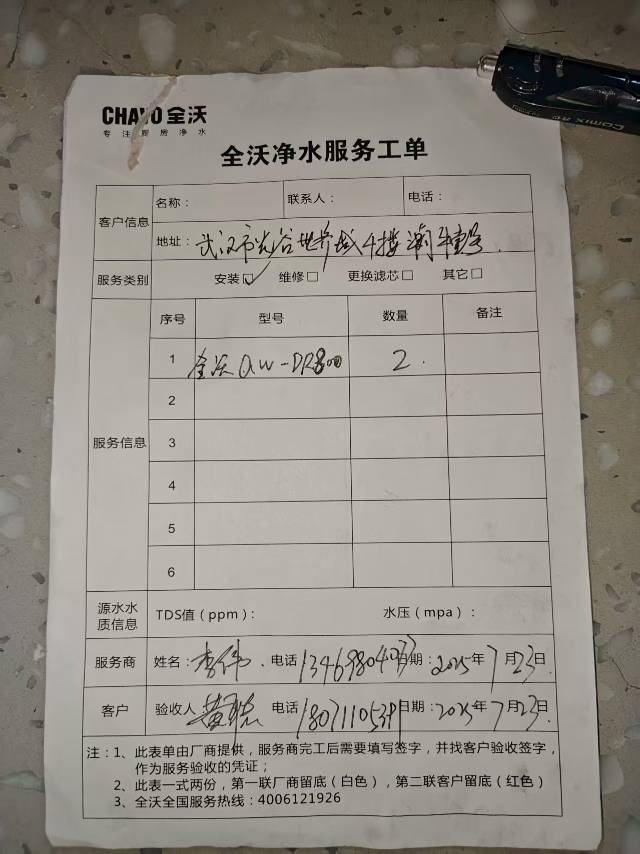 CHAYO 全沃
专注厨房净水
全沃净水服务工单
客户信息
名称：
联系人：
电话：
地址：武汉市光谷世界城4楼
服务类别
安装☑ 维修□ 更换滤芯□ 其它□
服务信息
序号 型号 数量 备注
1 全沃QW-DR800 2
2
3
4
5
6
源水水质信息
TDS值（ppm）： 水压（mpa）：
服务商 姓名：李伟 电话 日期：2025年7月23日
客户 验收人 黄 电话 日期：2025年7月23日
注：1、此表单由厂商提供，服务商完工后需要填写签字，并找客户验收签字，
作为服务验收的凭证；
2、此表一式两份，第一联厂商留底（白色），第二联客户留底（红色）
3、全沃全国服务热线：4006121926
Comix